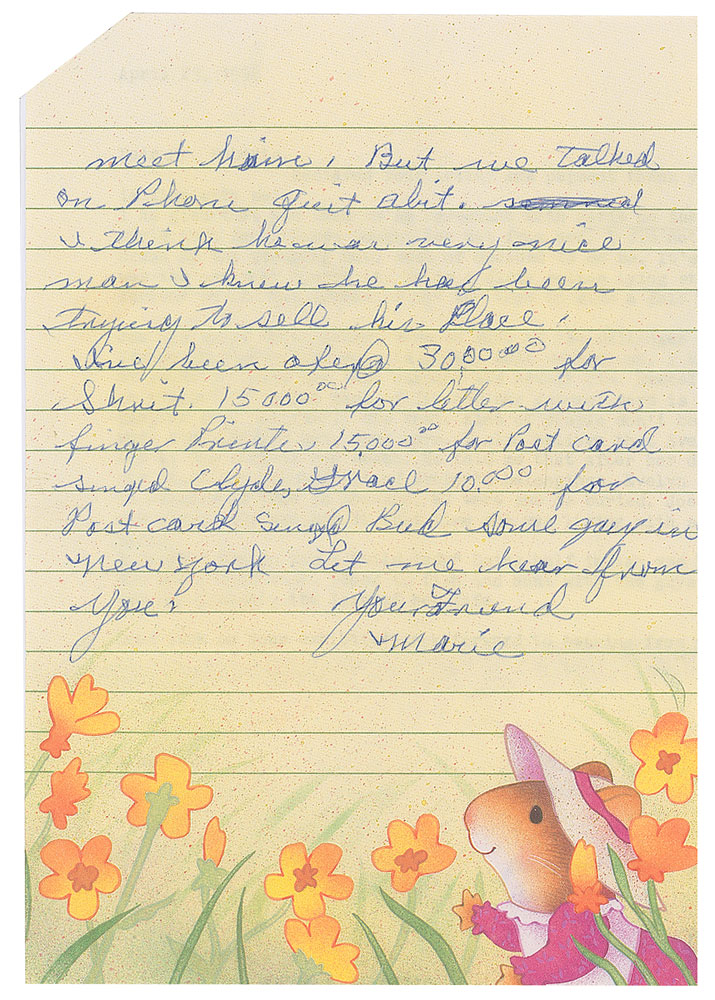 meet him, But we Talked
on Phone Quit abit.
I think he was very nice
man I knew he had been
Trying to sell his Place.
I've been oferd 30,000.00 for
Shirt. 15000.00 for letter with
finger Prints, 15,000.00 for Post card
singed Clyde, Grace 10,000 for
Post card Singed Bud some guy in
New York Let me hear from
You! Your Friend
Marie